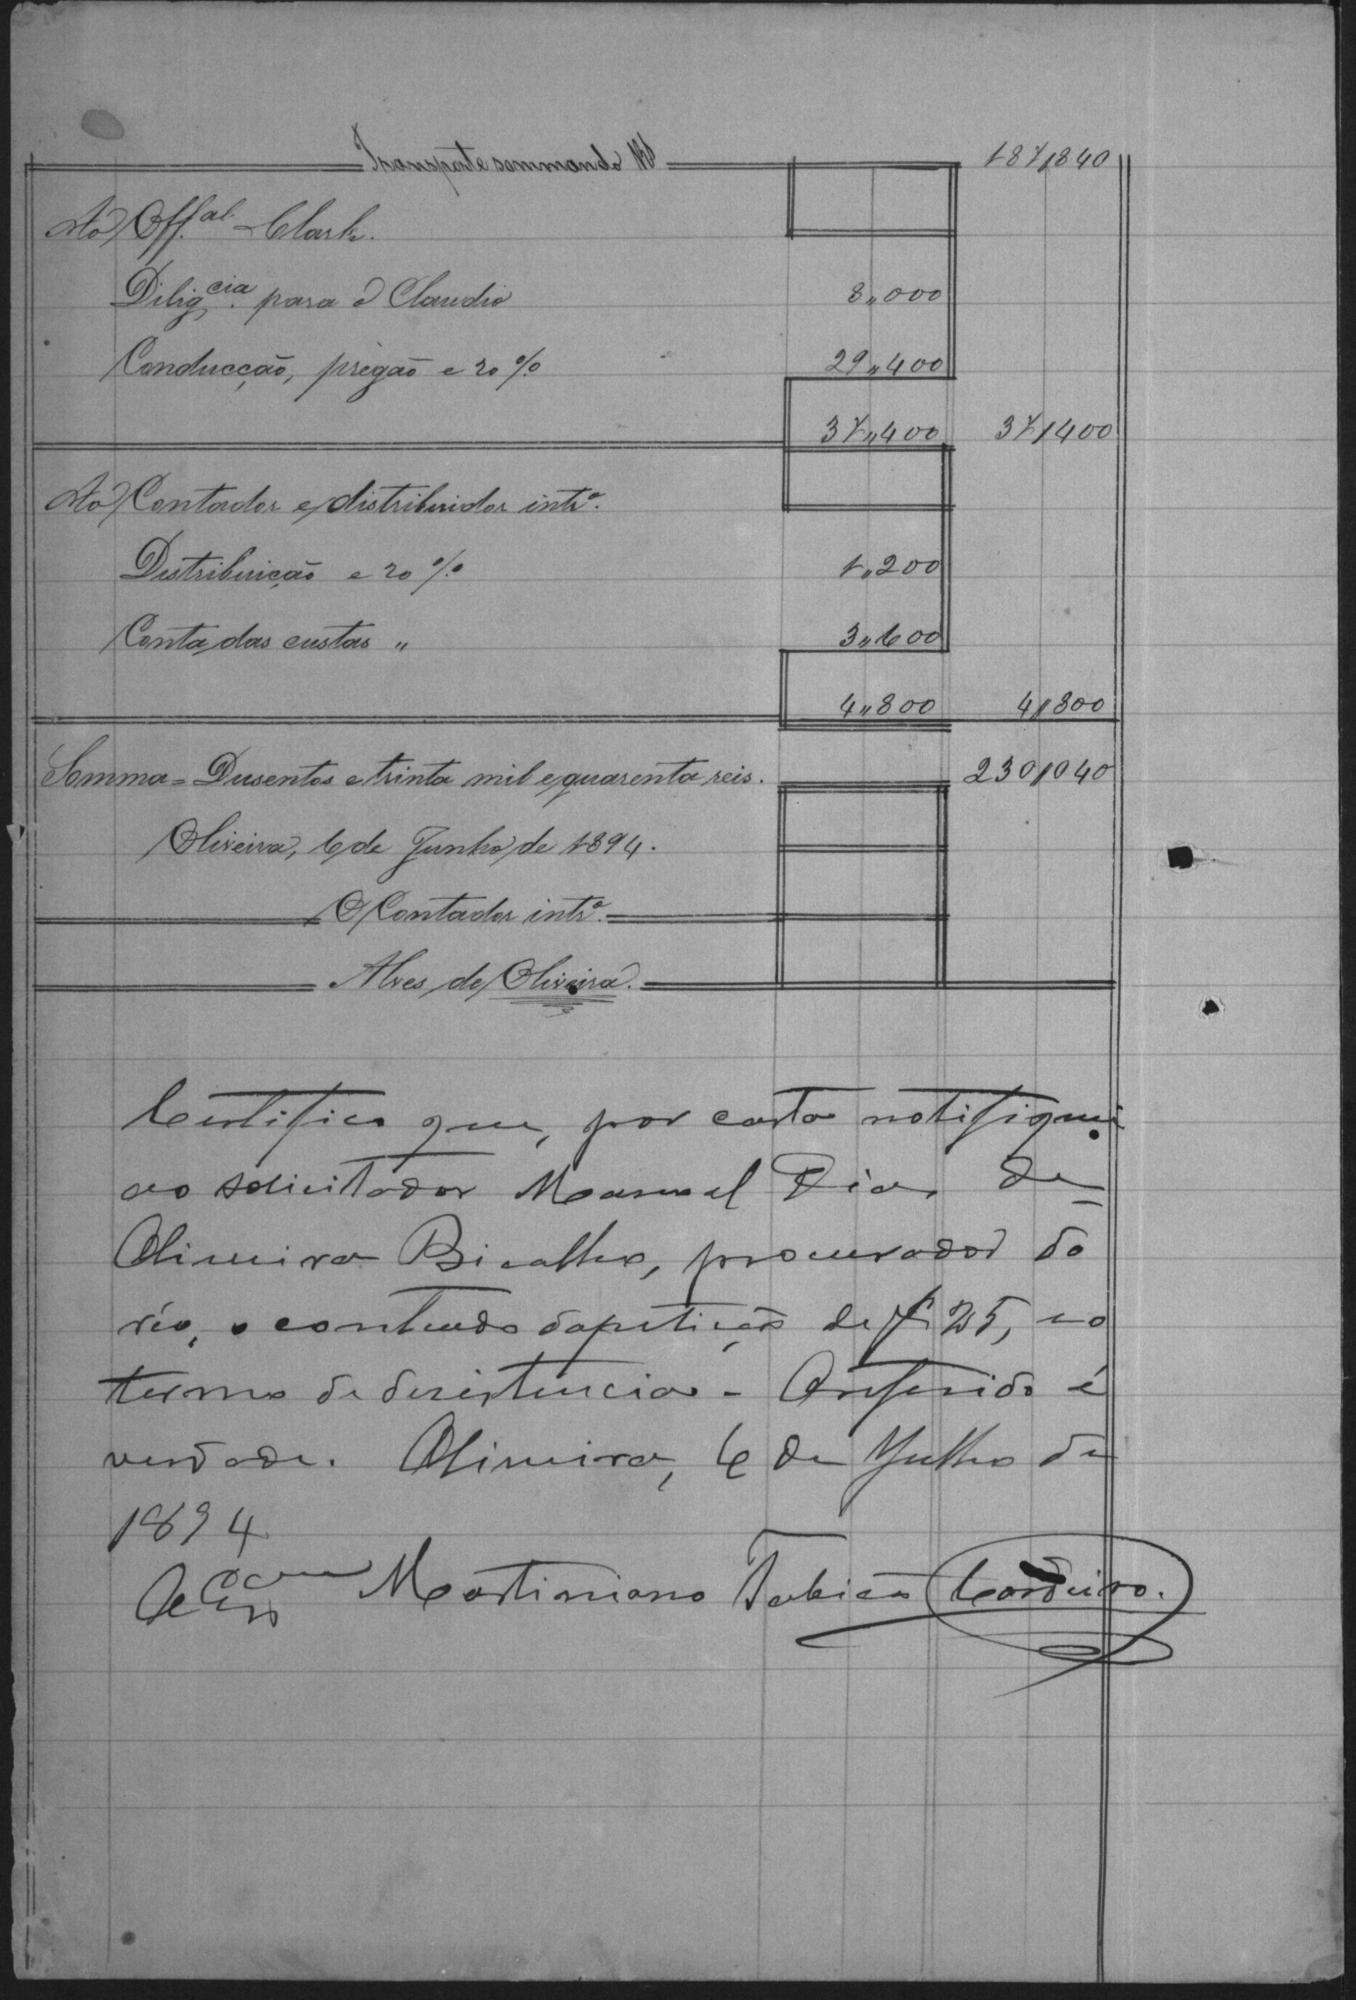 Transporte sommando Rs 187,840
Ao Off.al Clark.
Dilig.cia para o Claudio 8,,000
Conducção, pregão e 20 % 29,,400
37,,400 37,400
Ao Contador e distribuidor intr.o
Distribuição e 20 % 1,,200
Conta das custas ,, 3,,600
4,,800 4,800
Somma = Dusentos e trinta mil e quarenta reis. 230,040
Oliveira, 6 de Junho de 1894.
O Contador intr.o
Alves de Oliveira.
Certifico que, por carta notifiquei
ao solicitador Manoel Dias de
Oliveira Bicalho, procurador do
réo, o conteudo da petição de f 25, e o
termo de desistencia - O referido é
verdade. Oliveira, 6 de Julho de
1894
Martiniano Fabião Cordeiro.